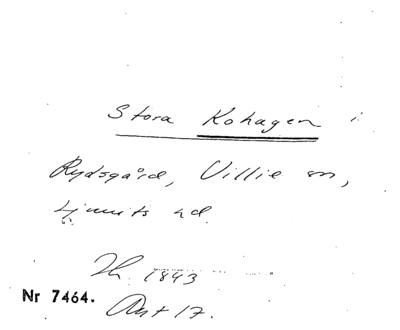 Stora Kohagen i
Rydsgård, Villie sn,
Ljunits hd.
1843
Nr 7464.
Akt 17.